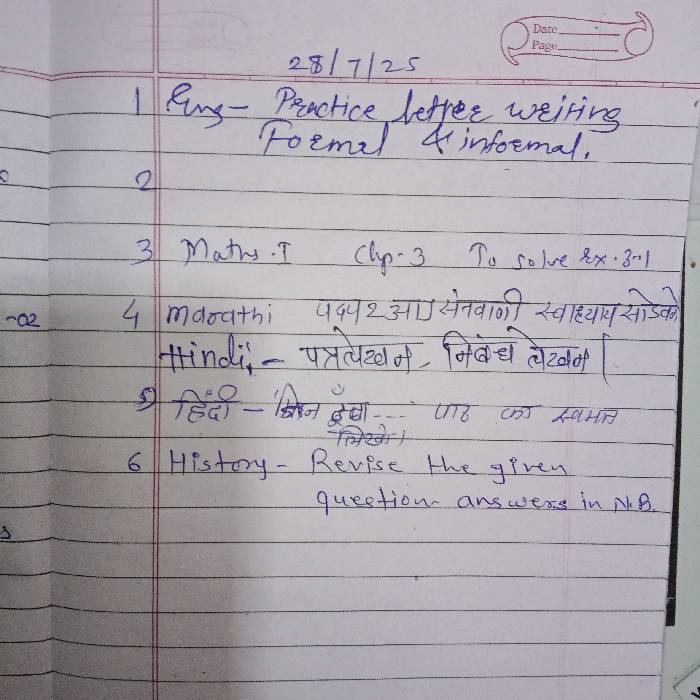 Date
Page
28/7/25
1 Eng- Practice letter writing
Formal & informal.
2
3 Maths.I Chp-3 To solve Ex.3.1
-02
4 Marathi पद्य 2 आ) संतवाणी स्वाध्याय सोडवणे
Hindi:- पत्रलेखन, निबंध लेखन।
5) हिंदी - ढूँढा ... पाठ का
लिखे।
6 History- Revise the given
question- answers in N.B.